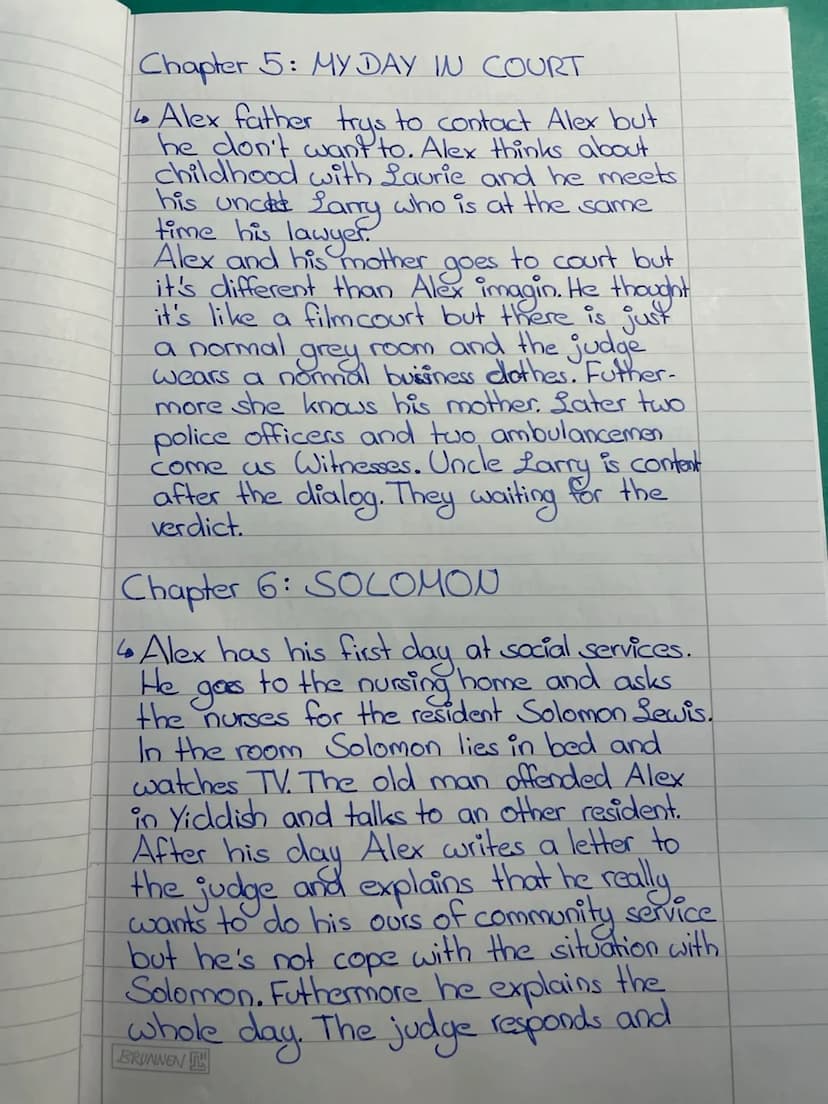 Chapter 5: MY DAY IN COURT
↳ Alex father trys to contact Alex but
he don't want to. Alex thinks about
childhood with Laurie and he meets
his uncle Larry who is at the same
time his lawyer.
Alex and his mother goes to court but
it's different than Alex imagin. He thought
it's like a filmcourt but there is just
a normal grey room and the judge
wears a normal business clothes. Futher-
more she knows his mother. Later two
police officers and two ambulancemen
come as Witnesses. Uncle Larry is content
after the dialog. They waiting for the
verdict.
Chapter 6: SOLOMON
↳ Alex has his first day at social services.
He goes to the nursing home and asks
the nurses for the resident Solomon Lewis.
In the room Solomon lies in bed and
watches TV. The old man offended Alex
in Yiddish and talks to an other resident.
After his day Alex writes a letter to
the judge and explains that he really
wants to do his ours of community service
but he's not cope with the situation with
Solomon. Futhermore he explains the
whole day. The judge responds and
BRUNNEN